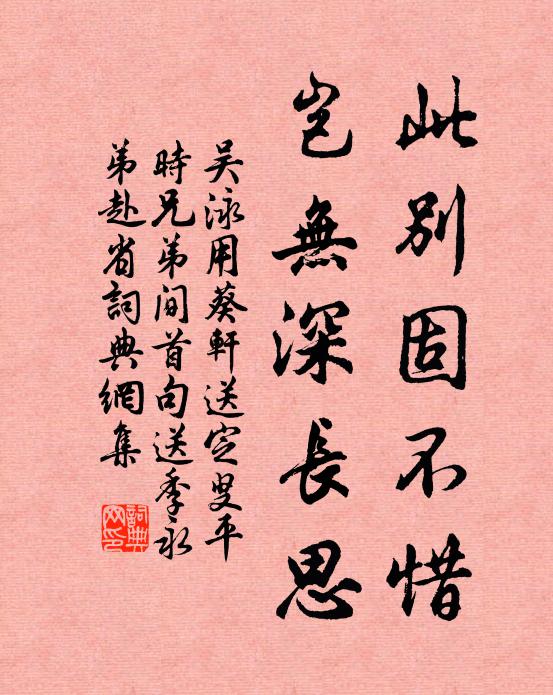 此別固不惜
豈無深長思
吴泳用葵軒送定叟平
時兄弟间首句送季永
弟赴省詞典網集
詞典网印